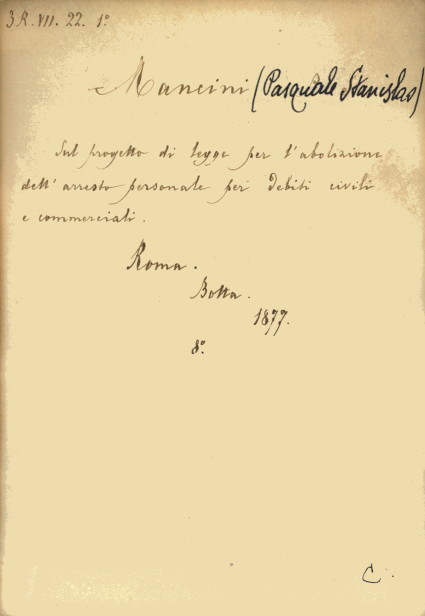 3.R.VII.22.1º
Mancini (Pasquale Stanislao)
Sul progetto di legge per l'abolizione
dell'arresto personale per debiti civili
e commerciali.
Roma.
Botta.
1877.
8º.
C.